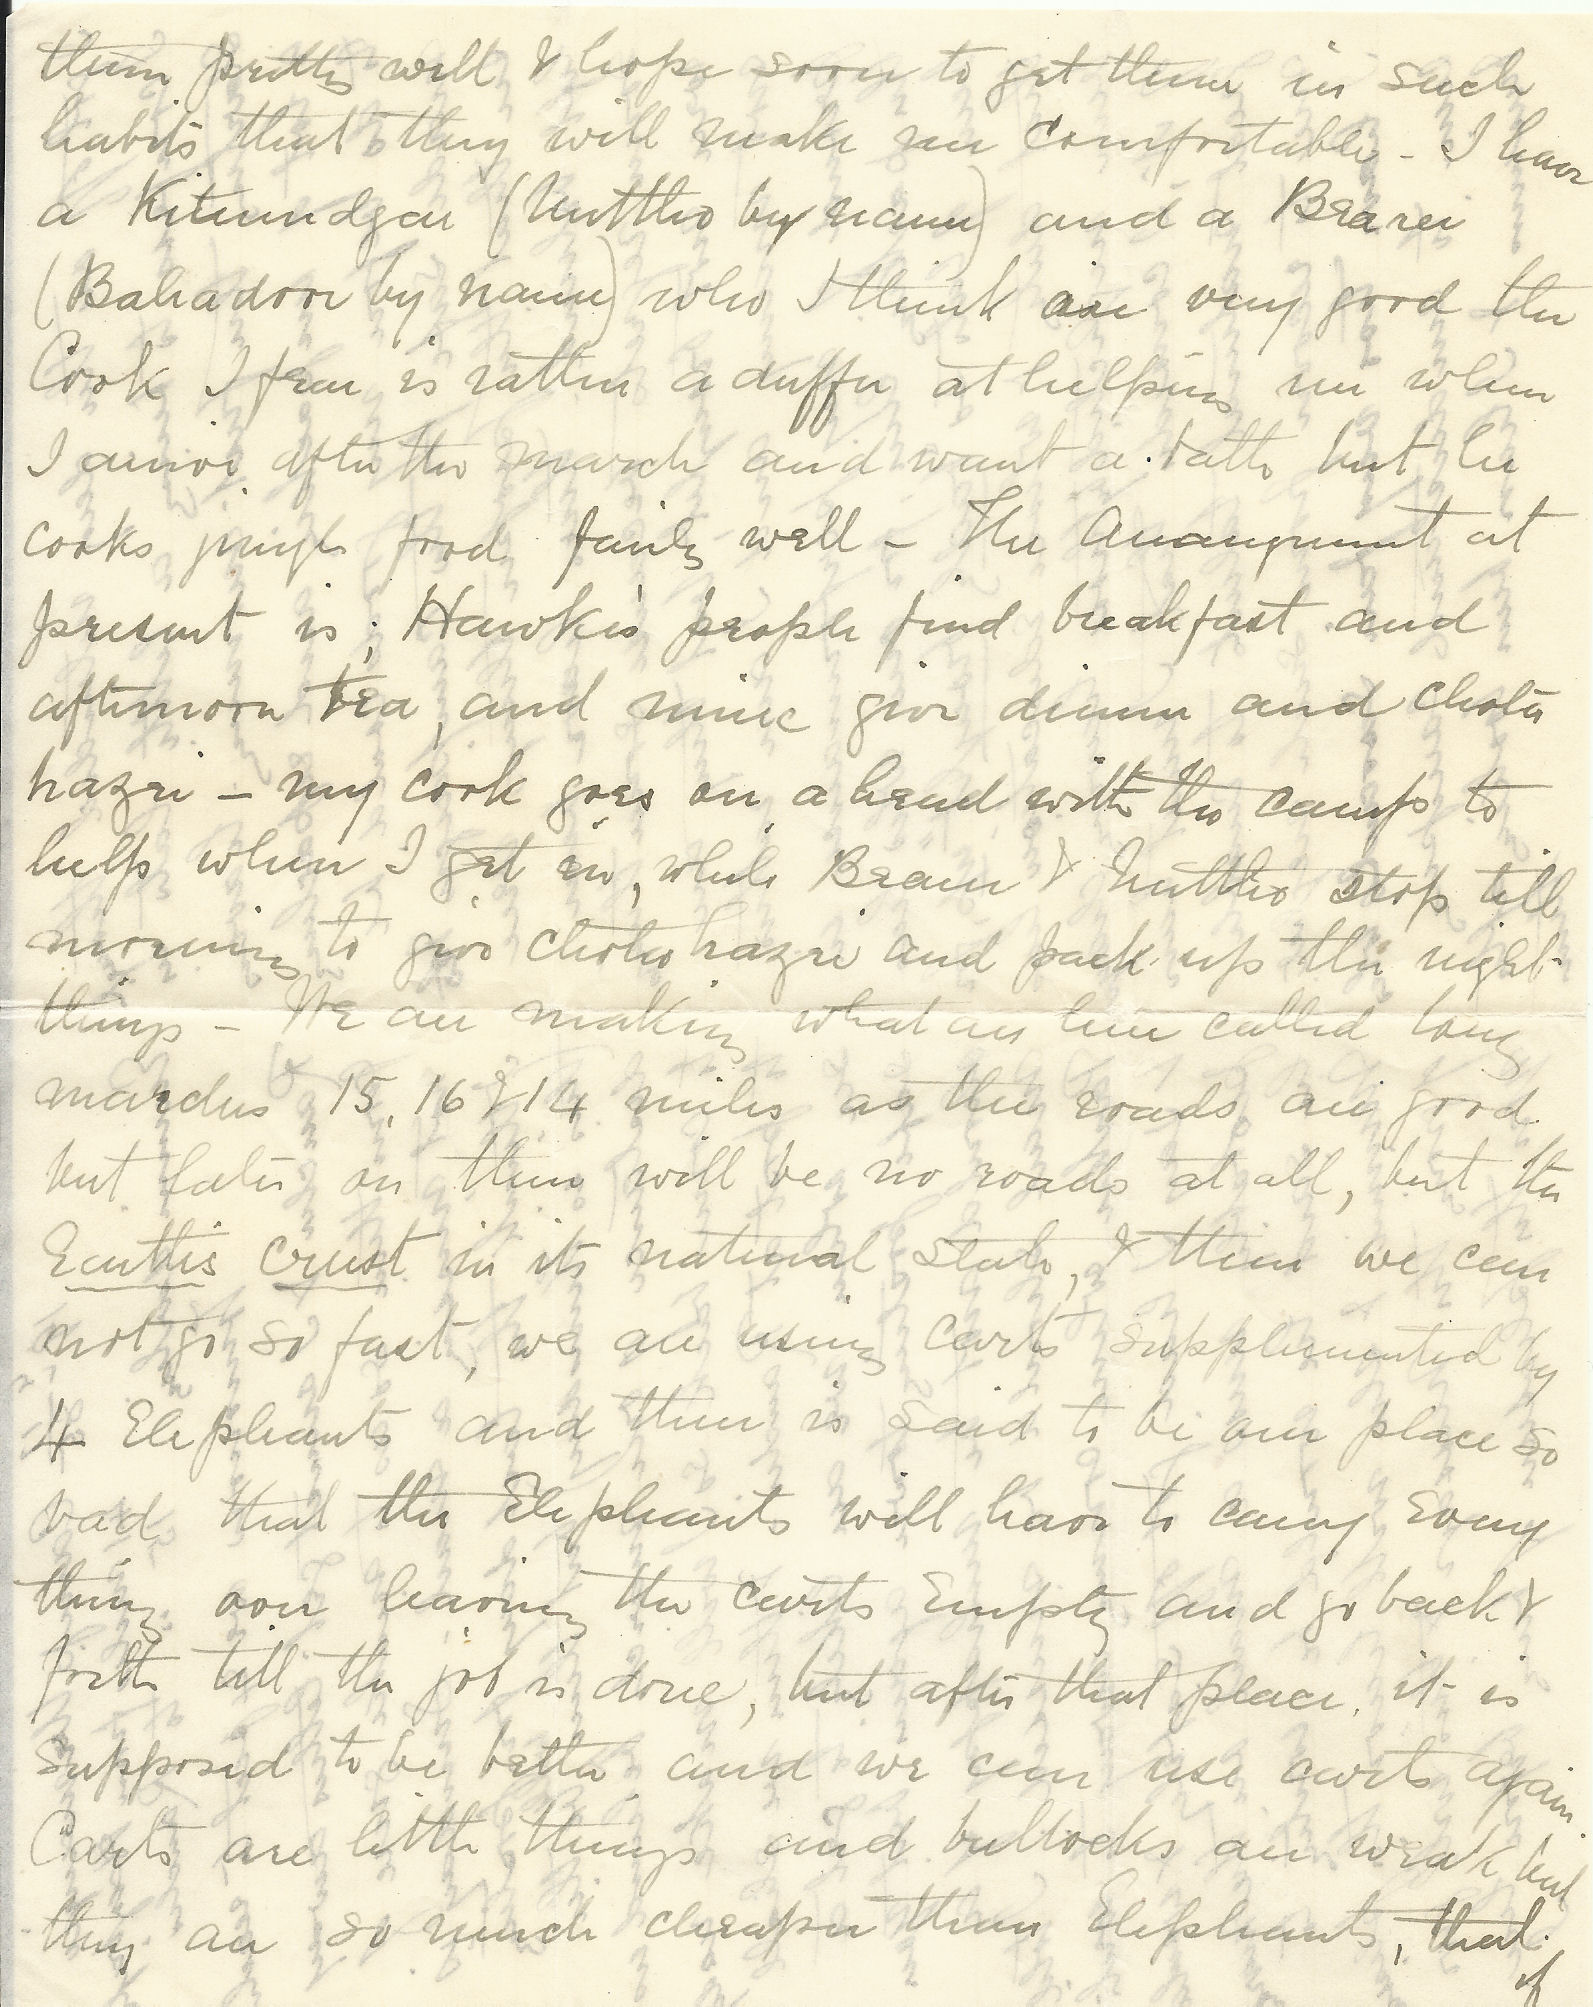 them pretty well & hope soon to get them in such
habits that they will make me comfortable - I have
a Kitmudgar (Nutthoo by name) and a Bearer
(Bahadoor by name) who I think are very good the
Cook I fear is rather a duffer at helping me when
I arrive after the march and want a bath but he
cooks jungle food fairly well - The Arrangement at
present is; Hawkes people find breakfast and
afternoon tea, and mine give dinner and chota
hazri - my cook goes on a head with the camp to
help when I get in, while Bearer & Nutthoo stop till
morning to give chota hazri and pack up the night
things - We are making what are here called long
marches 15, 16 & 14 miles as the roads are good
but later on there will be no roads at all, but the
Earths crust in its natural state, & then we can
not go so fast, we are using carts supplemented by
4 Elephants and there is said to be one place so
bad that the Elephants will have to carry every
thing over leaving the carts Empty and go back &
forth till the job is done, but after that place. it is
supposed to be better and we can use carts again.
Carts are little things and bullocks are weak but
they are so much cheaper than Elephants, that
if